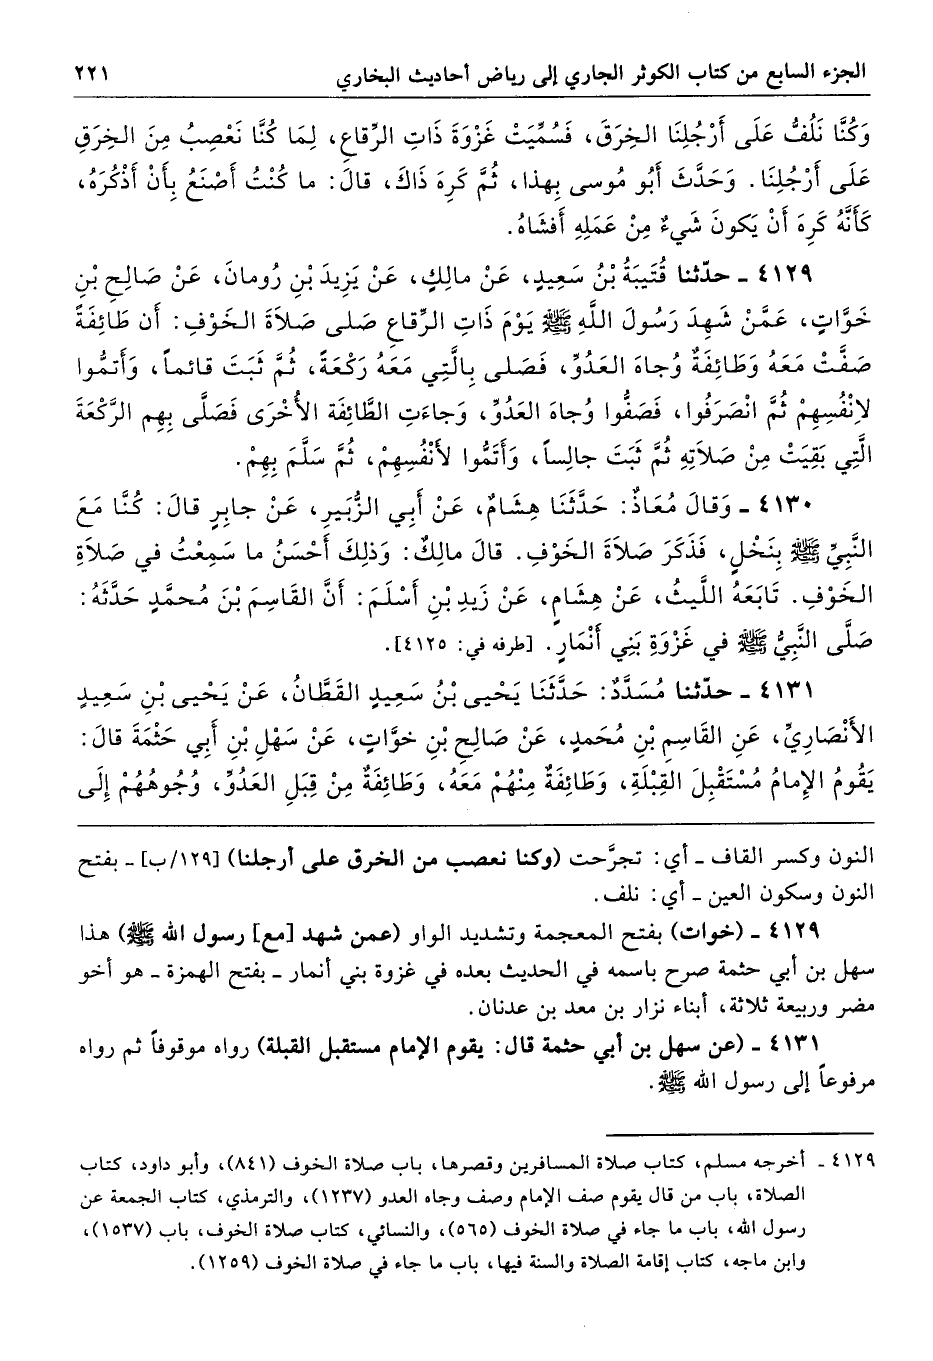 الجزء السابع من كتاب الكوثر الجاري إلى رياض أحاديث البخاري ٢٢١
وَكُنَّا نَلُفُّ عَلَى أَرْجُلِنَا الخِرَقَ، فَسُمِّيَتْ غَزْوَةَ ذَاتِ الرِّقاعِ، لِمَا كُنَّا نَعْصِبُ مِنَ الخِرَقِ
عَلَى أَرْجُلِنَا. وَحَدَّثَ أَبُو مُوسى بِهذا، ثُمَّ كَرِهَ ذَاكَ، قالَ: ما كُنْتُ أَصْنَعُ بِأَنْ أَذْكُرَهُ،
كَأَنَّهُ كَرِهَ أَنْ يَكونَ شَيءٌ مِنْ عَمَلِهِ أَفشَاهُ.
٤١٢٩ ـ حدّثنا قُتَيبَةُ بْنُ سَعِيدٍ، عَنْ مالِكٍ، عَنْ يَزِيدَ بْنِ رُومانَ، عَنْ صَالِحِ بْنِ
خَوَّاتٍ، عَمَّنْ شَهِدَ رَسُولَ اللَّهِ ﷺ يَوْمَ ذَاتِ الرِّقاعِ صَلى صَلَاةَ الخَوْفِ: أَن طَائِفَةً
صَفَّتْ مَعَهُ وَطَائِفَةٌ وُجاهَ العَدُوِّ، فَصَلى بِالَّتِي مَعَهُ رَكْعَةً، ثُمَّ ثَبَتَ قائماً، وَأَتمُّوا
لانْفُسِهِمْ ثُمَّ انْصَرَفُوا، فَصَفُّوا وُجاهَ العَدُوِّ، وَجاءَتِ الطَّائِفَة الأُخْرَى فَصَلَّى بِهِم الرَّكْعَةَ
الَّتِي بَقِيَتْ مِنْ صَلَاتِهِ ثُمَّ ثَبَتَ جالِساً، وَأَتَمُّوا لأَنْفُسِهِمْ، ثُمَّ سَلَّمَ بِهِمْ.
٤١٣٠ ـ وَقالَ مُعَاذٌ: حَدَّثَنَا هِشَامٌ، عَنْ أَبِي الزُّبَيرِ، عَنْ جابِرٍ قالَ: كُنَّا مَعَ
النَّبِيِّ ﷺ بِنَخْلٍ، فَذَكَرَ صَلَاةَ الخَوْفِ. قالَ مالِكٌ: وَذلِكَ أَحْسَنُ ما سَمِعْتُ في صَلَاةِ
الخَوْفِ. تَابَعَهُ اللَّيثُ، عَنْ هِشَامٍ، عَنْ زَيدِ بْنِ أَسْلَمَ: أَنَّ القَاسِمَ بْنَ مُحمَّدٍ حَدَّثَهُ:
صَلَّى النَّبِيُّ ﷺ في غَزْوَةِ بَنِي أَنْمَارٍ. [طرفه في: ٤١٢٥].
٤١٣١ ـ حدّثنا مُسَدَّدٌ: حَدَّثَنَا يَحْيى بْنُ سَعِيدٍ القَطَّانُ، عَنْ يَحْيى بْنِ سَعِيدٍ
الأَنْصَارِيِّ، عَنِ القَاسِمِ بْنِ مُحَمدٍ، عَنْ صَالِحِ بْنِ خَوَّاتٍ، عَنْ سَهْلِ بْنِ أَبِي حَثْمَةَ قالَ:
يَقُومُ الإمامُ مُسْتَقْبِلَ القِبْلَةِ، وَطَائِفَةٌ مِنْهُمْ مَعَهُ، وَطَائِفَةٌ مِنْ قِبَلِ العَدُوِّ، وُجُوهُهُمْ إِلَى
النون وكسر القاف ـ أي: تجرَّحت (وكنا نعصب من الخرق على أرجلنا) [١٢٩/ب] ـ بفتح
النون وسكون العين ـ أي: نلف.
٤١٢٩ ـ (خوات) بفتح المعجمة وتشديد الواو (عمن شهد [مع] رسول الله ﷺ) هذا
سهل بن أبي حثمة صرح باسمه في الحديث بعده في غزوة بني أنمار ـ بفتح الهمزة ـ هو أخو
مضر وربيعة ثلاثة، أبناء نزار بن معد بن عدنان.
٤١٣١ ـ (عن سهل بن أبي حثمة قال: يقوم الإمام مستقبل القبلة) رواه موقوفاً ثم رواه
مرفوعاً إلى رسول الله ﷺ.
٤١٢٩ ـ أخرجه مسلم، كتاب صلاة المسافرين وقصرها، باب صلاة الخوف (٨٤١)، وأبو داود، كتاب
الصلاة، باب من قال يقوم صف الإمام وصف وجاه العدو (١٢٣٧)، والترمذي، كتاب الجمعة عن
رسول الله، باب ما جاء في صلاة الخوف (٥٦٥)، والنسائي، كتاب صلاة الخوف، باب (١٥٣٧)،
وابن ماجه، كتاب إقامة الصلاة والسنة فيها، باب ما جاء في صلاة الخوف (١٢٥٩).